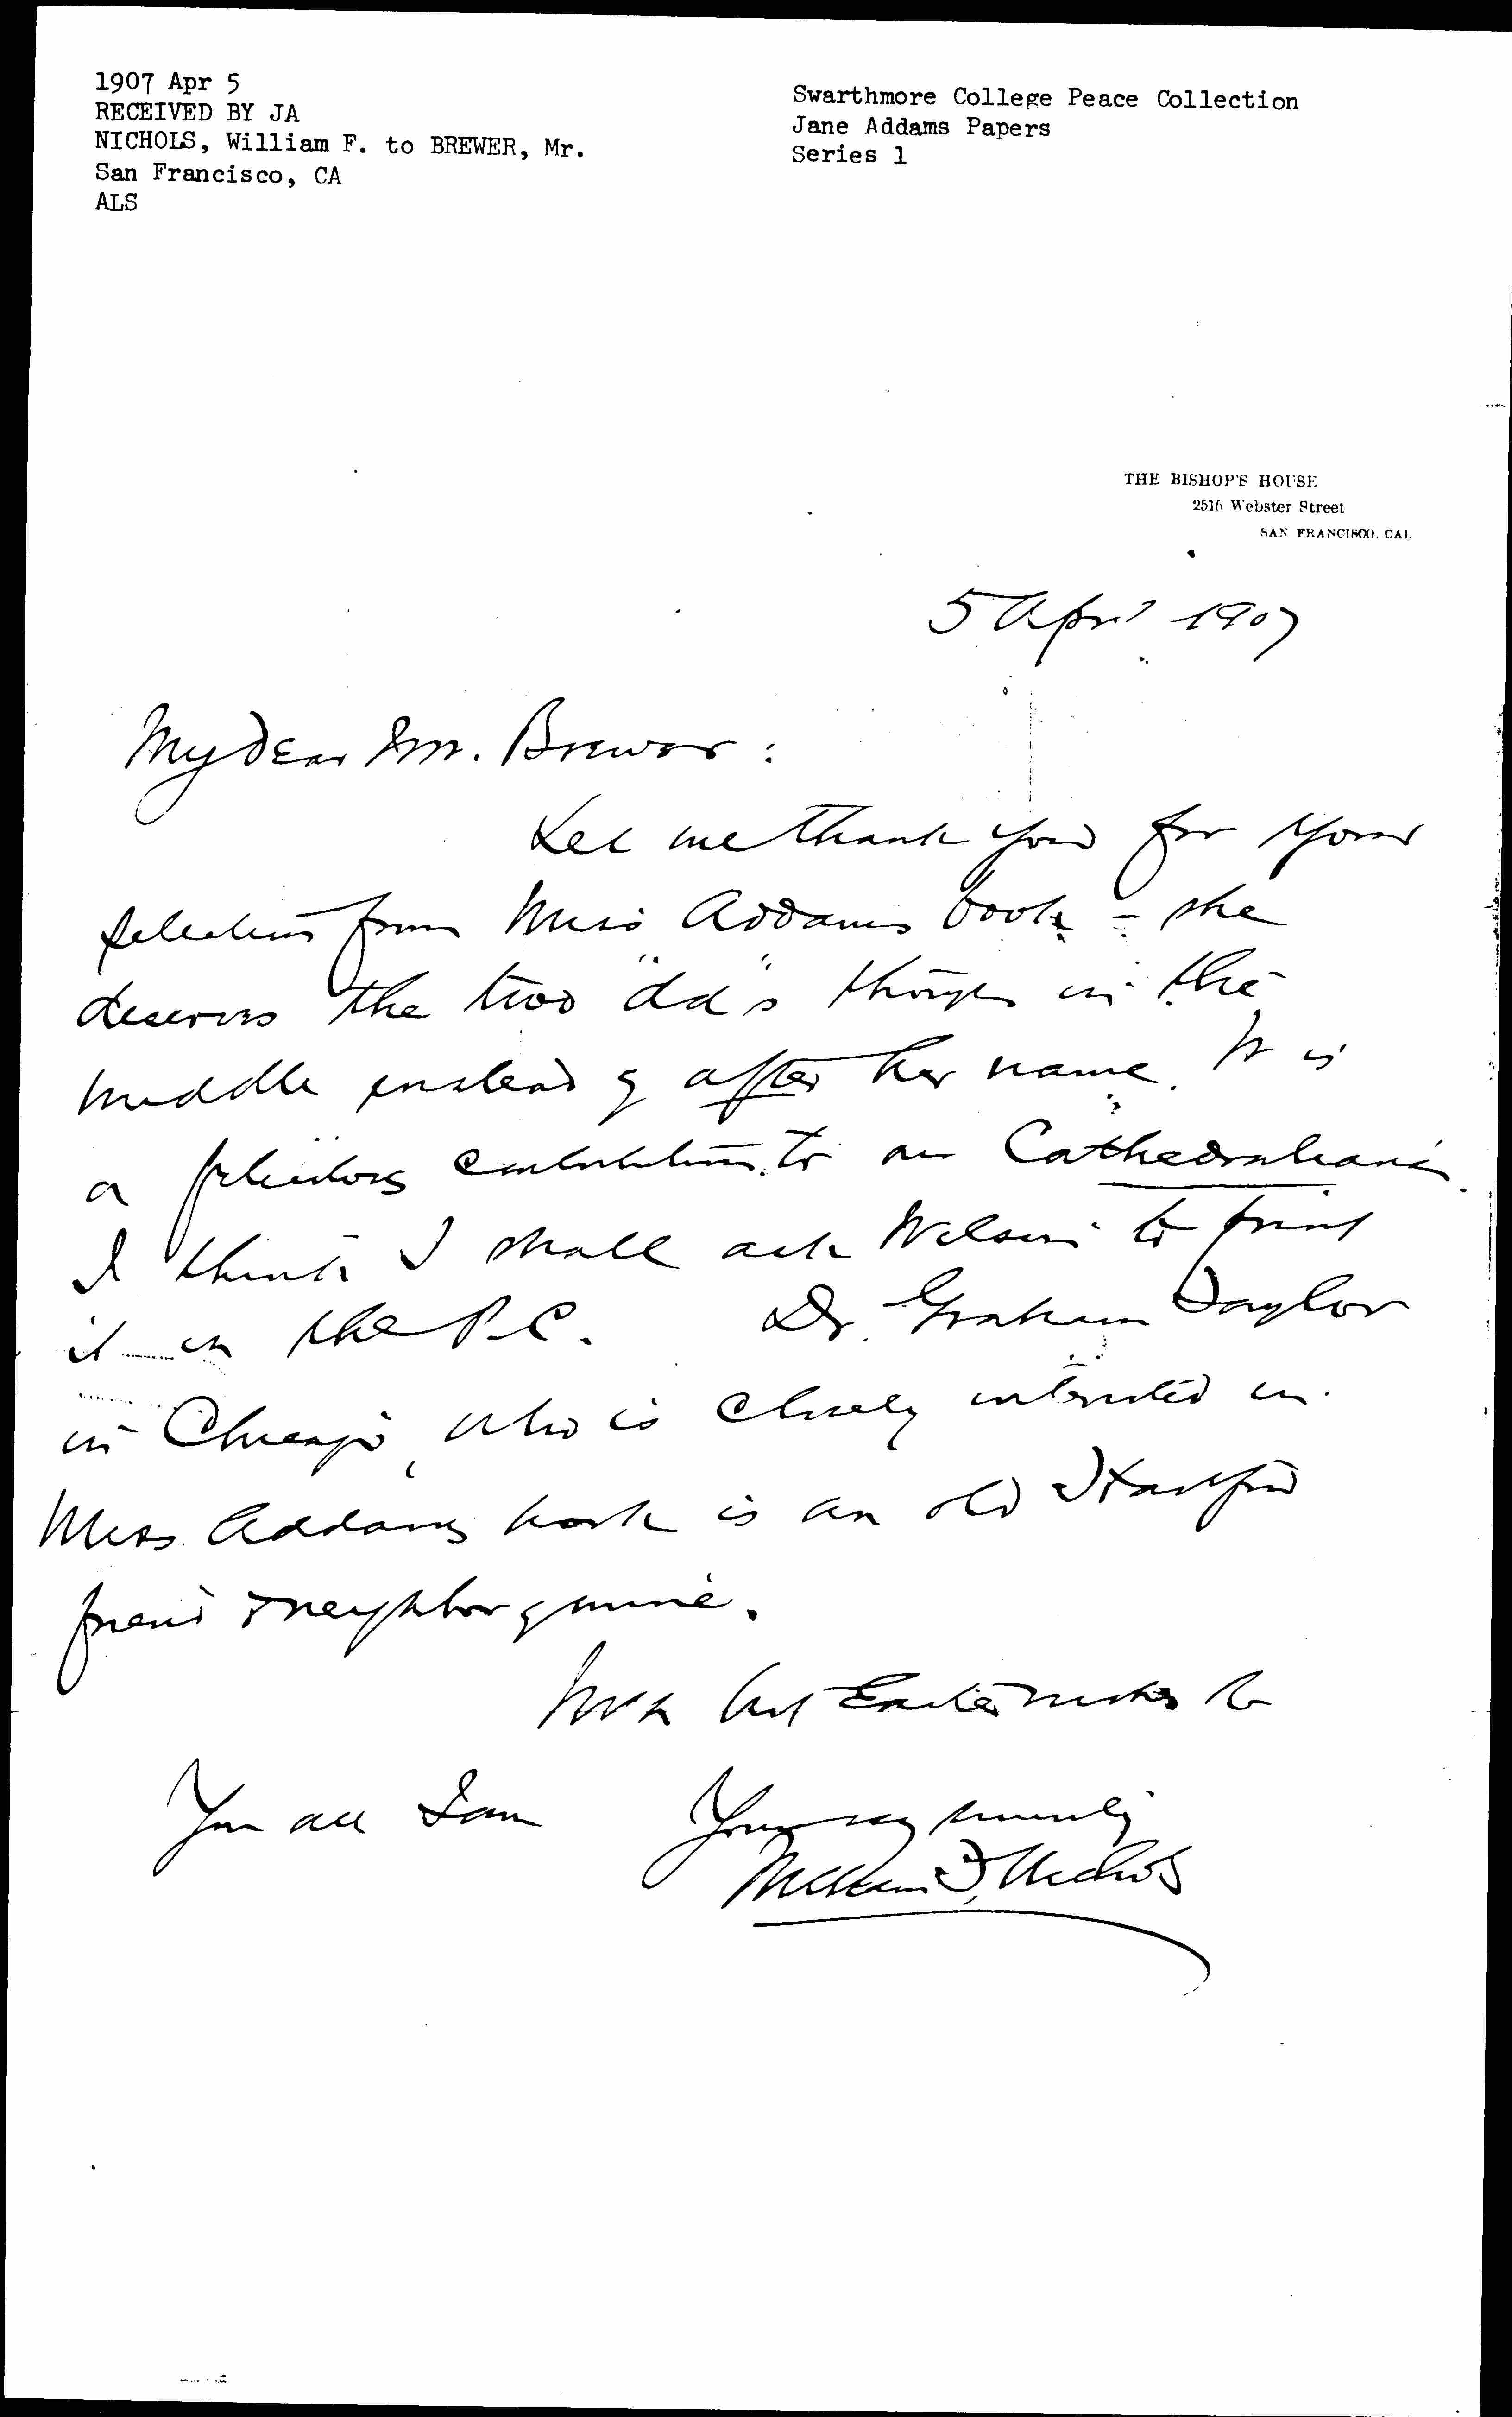 1907 Apr 5
RECEIVED BY JA
NICHOLS, William F. to BREWER, Mr.
San Francisco, CA
ALS
Swarthmore College Peace Collection
Jane Addams Papers
Series 1
THE BISHOP'S HOUSE
2515 Webster Street
SAN FRANCISCO, CAL.
5 April 1907
My dear Mr. Brewer:
Let me thank you for your
selection from Miss Addams book - she
deserves the two "dd"s though in the
middle instead of after her name. It is
a felicitous contribution to our Cathedraliana.
I think I shall ask Wilson to print
it in the P.C. Dr. Graham Taylor
in Chicago, who is closely interested in
Miss Addams work is an old Hartford
friend & neighbor of mine.
With best Easter wishes to
You all I am Yours very
William F. Nichols